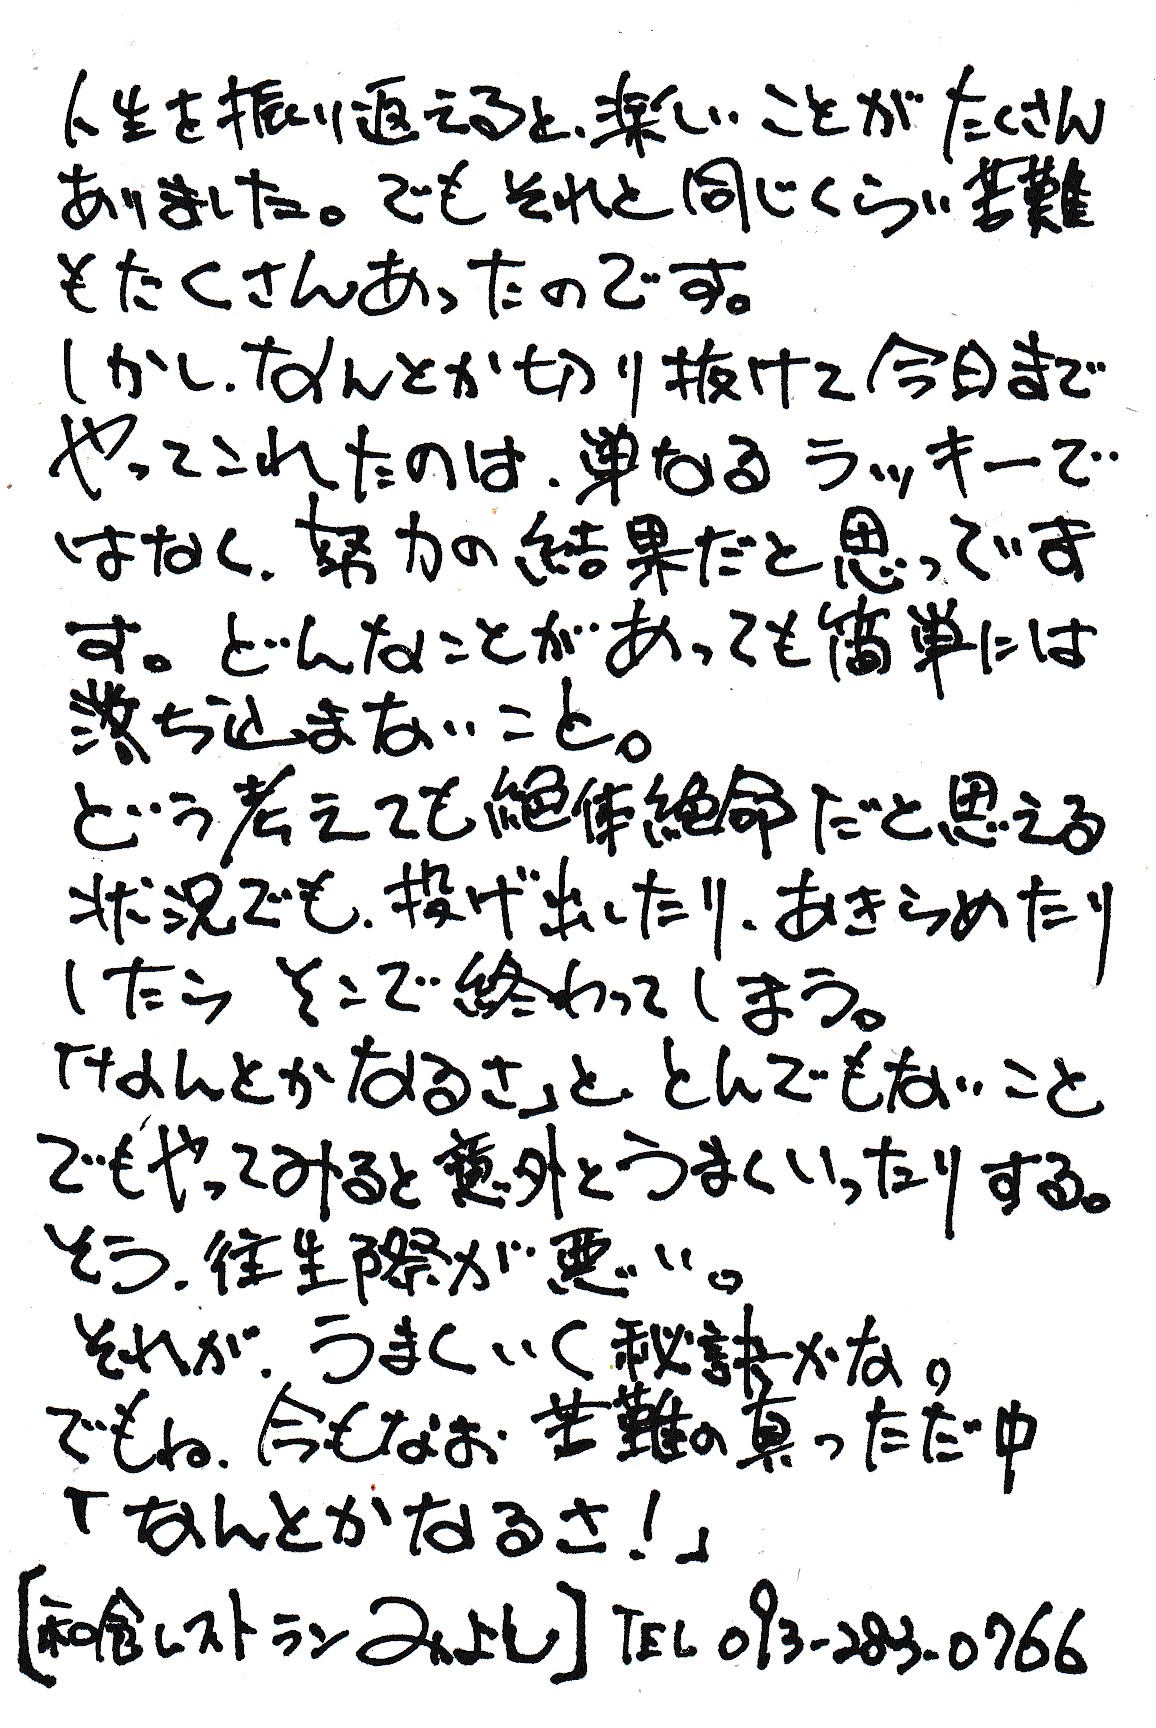 人生を振り返えると、楽しいことがたくさん
ありました。でもそれと同じくらい苦難
もたくさんあったのです。
しかし、なんとか切り抜けて今日まで
やってこれたのは、単なるラッキーで
はなく、努力の結果だと思っています
す。どんなことがあっても簡単には
落ち込まないこと。
どう考えても絶体絶命だと思える
状況でも、投げ出したり、あきらめたり
したらそこで終わってしまう。
「なんとかなるさ」と、とんでもないこと
でもやってみると意外とうまくいったりする。
そう、往生際が悪い。
それが、うまくいく秘訣かな。
でもね、今もなお苦難の真っただ中
「なんとかなるさ！」
[和食レストランみよし] TEL 093-283-0766